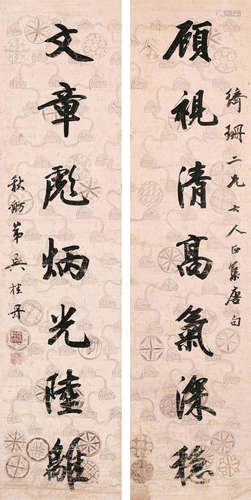 珊二兄大人正集唐句
顧視清高氣深穩
文章彪炳光陸離
秋舫弟吳桂丹